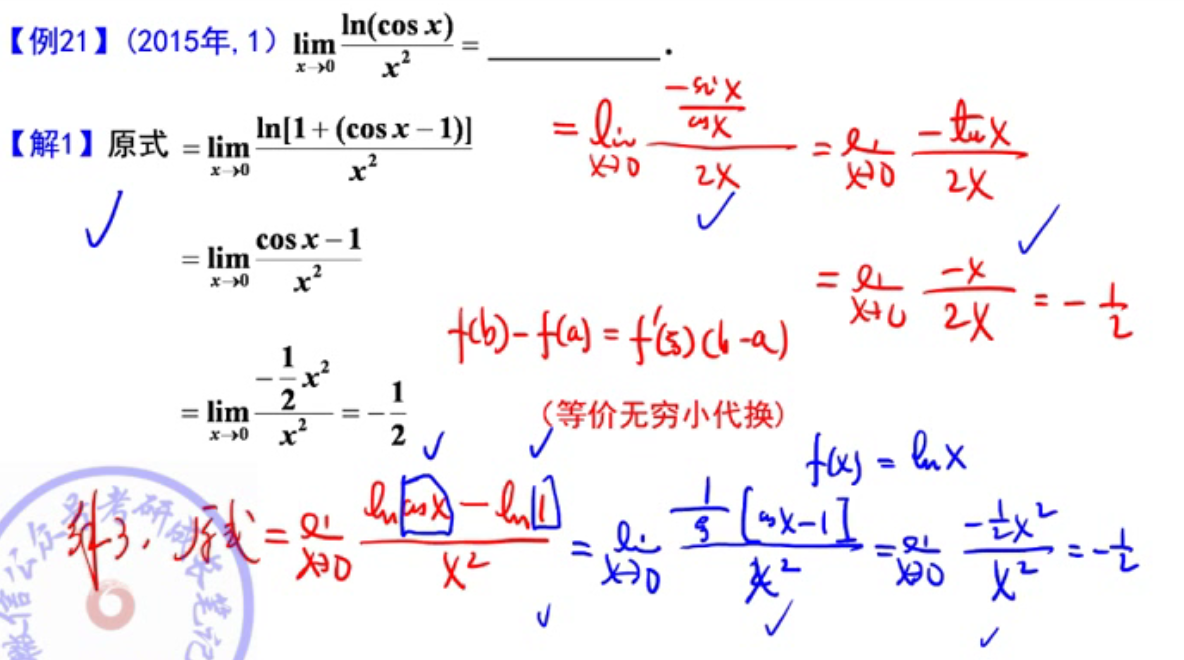 【例21】(2015年,1) lim_{x→0} ln(cos x)/x² = ________.
【解1】原式 = lim_{x→0} ln[1+(cos x−1)]/x²
= lim_{x→0} (cos x−1)/x²
= lim_{x→0} (−1/2 x²)/x² = −1/2
= lim_{x→0} (−sin x/cos x)/(2x) = lim_{x→0} (−tan x)/(2x)
= lim_{x→0} (−x)/(2x) = −1/2
f(b)−f(a) = f′(ξ)(b−a)
(等价无穷小代换)
f(x) = ln x
解3. 原式 = lim_{x→0} (ln cos x − ln 1)/x² = lim_{x→0} (1/ξ [cos x−1])/x² = lim_{x→0} (−1/2 x²)/x² = −1/2